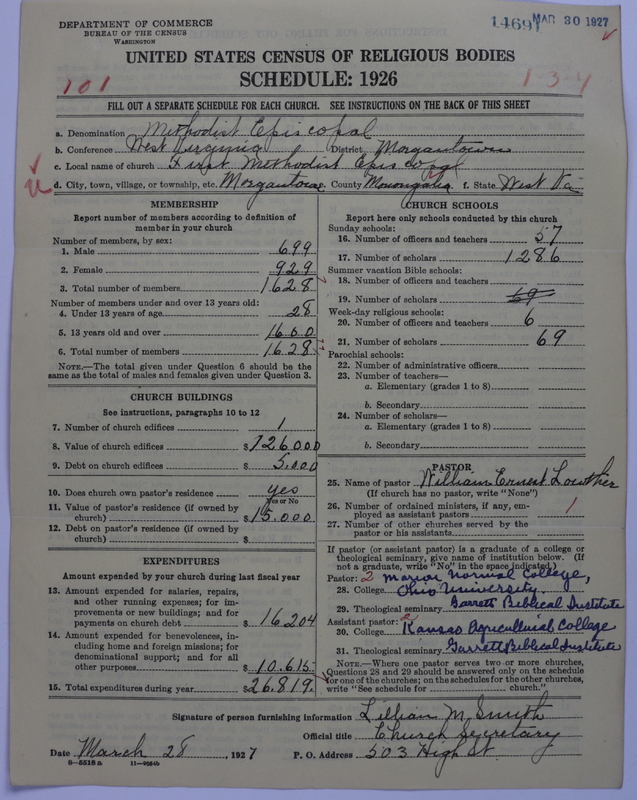 DEPARTMENT OF COMMERCE
BUREAU OF THE CENSUS
WASHINGTON
14691 MAR 30 1927
UNITED STATES CENSUS OF RELIGIOUS BODIES
SCHEDULE: 1926
101
1-3-4
FILL OUT A SEPARATE SCHEDULE FOR EACH CHURCH. SEE INSTRUCTIONS ON THE BACK OF THIS SHEET
a. Denomination Methodist Episcopal
b. Conference West Virginia District Morgantown
c. Local name of church First Methodist Episcopal
d. City, town, village, or township, etc. Morgantown County Monongalia f. State West Va
MEMBERSHIP
Report number of members according to definition of
member in your church
Number of members, by sex:
1. Male 699
2. Female 929
3. Total number of members 1628
Number of members under and over 13 years old:
4. Under 13 years of age 28
5. 13 years old and over 1600
6. Total number of members 1628
NOTE.—The total given under Question 6 should be the
same as the total of males and females given under Question 3.
CHURCH BUILDINGS
See instructions, paragraphs 10 to 12
7. Number of church edifices 1
8. Value of church edifices $126000
9. Debt on church edifices $5,000
10. Does church own pastor's residence yes
Yes or No
11. Value of pastor's residence (if owned by
church) $15,000
12. Debt on pastor's residence (if owned by
church) $
EXPENDITURES
Amount expended by your church during last fiscal year
13. Amount expended for salaries, repairs,
and other running expenses; for im-
provements or new buildings; and for
payments on church debt $16204
14. Amount expended for benevolences, in-
cluding home and foreign missions; for
denominational support; and for all
other purposes $10.615
15. Total expenditures during year $26.819.
CHURCH SCHOOLS
Report here only schools conducted by this church
Sunday schools:
16. Number of officers and teachers 57
17. Number of scholars 1286
Summer vacation Bible schools:
18. Number of officers and teachers
19. Number of scholars 69
Week-day religious schools:
20. Number of officers and teachers 6
21. Number of scholars 69
Parochial schools:
22. Number of administrative officers
23. Number of teachers—
a. Elementary (grades 1 to 8)
b. Secondary
24. Number of scholars—
a. Elementary (grades 1 to 8)
b. Secondary
PASTOR
25. Name of pastor William Ernest Lowther
(If church has no pastor, write "None")
26. Number of ordained ministers, if any, em-
ployed as assistant pastors 1
27. Number of other churches served by the
pastor or his assistants
If pastor (or assistant pastor) is a graduate of a college or
theological seminary, give name of institution below. (If
not a graduate, write "No" in the space indicated.)
Pastor: 2 Marion Normal College,
28. College Ohio University
29. Theological seminary Garrett Biblical Institute
Assistant pastor: 2
30. College Kansas Agricultural College
31. Theological seminary Garrett Biblical Institute
NOTE.—Where one pastor serves two or more churches,
Questions 28 and 29 should be answered only on the schedule
for one of the churches; on the schedules for the other churches,
write "See schedule for church."
Signature of person furnishing information Lillian M. Smith
Official title Church Secretary
Date March 28, 1927 P. O. Address 503 High St
8—5518 a 11—9554b